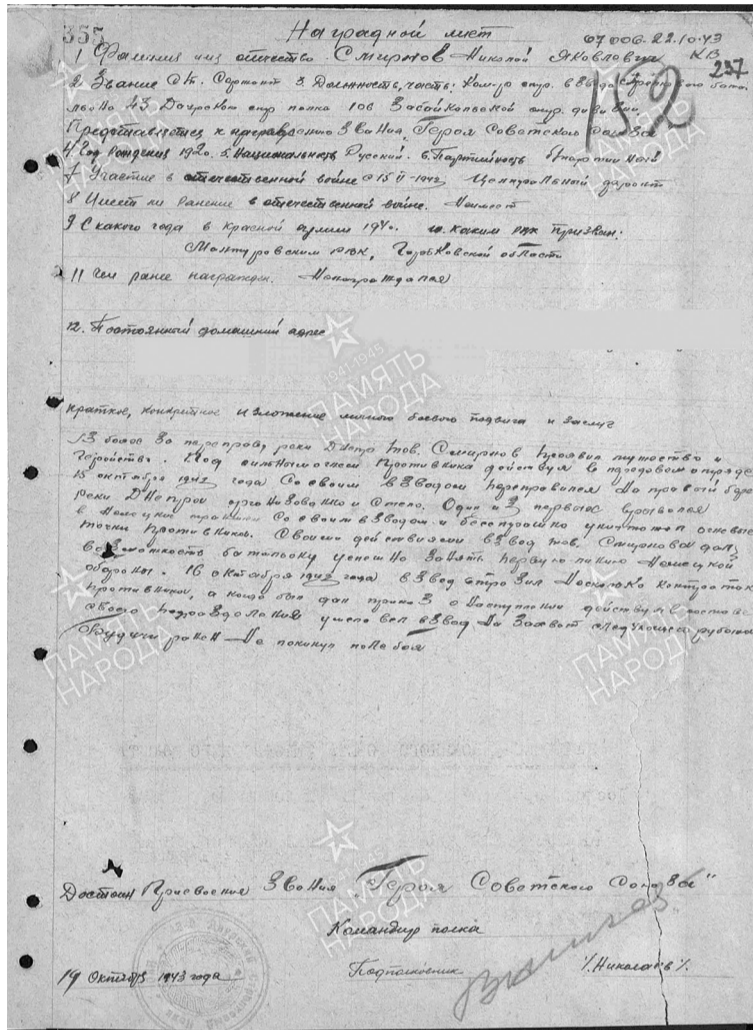 355
Наградной лист
67 006. 22.10.43
КВ
237
192
1 Фамилия имя отчество. Смирнов Николай Яковлевич
2 Звание Ст. Сержант 3. Должность, часть: Ком-р стр. взвода стрелкового бата
льона 43 Даурского стр полка 106 Забайкальской стр. дивизии.
Представляется к награждению Звания „Героя Советского Союза
4 Год рождения 1920. 5. Национальность Русский. 6. Партийность беспартийный
7 Участие в отечественной войне с 15 II-1942 Центральный фронт
8 Имеет ли ранение в отечественной войне. Не имеет
9 С какого года в Красной армии 1940. 10. каким рвк призван:
Мантуровским рвк, Горьковской области
11 Чем ранее награжден. Не награждался
12. Постоянный домашний адрес
краткое, конкретное изложение личного боевого подвига и заслуг
В боях за переправу реки Днепр тов. Смирнов проявил мужество и
геройство. Под сильным огнем противника действуя в передовом отряде
15 октября 1943 года со своим взводом переправился на правый берег
реки Днепра организованно и смело. Один из первых ворвался
в немецкие траншеи со своим взводом и бесстрашно уничтожал огневые
точки противника. Своими действиями взвод тов. Смирнова дал
возможность батальону успешно занять первую линию немецкой
обороны. 16 октября 1943 года взвод отразил несколько контратак
противника, а когда был дан приказ о наступлении действуя в составе
своего подразделения успешно вел взвод на захват следующего рубежа
Будучи ранен не покинул поле боя
Достоин Присвоения Звания „Героя Советского Союза"
Командир полка
19 Октября 1943 года Подполковник /.Николаев/.
ПАМЯТЬ
НАРОДА
1941-1945
ПАМЯТЬ
НАРОДА
ПАМЯТЬ
НАРОДА
ПАМЯТЬ
НАРОДА
1941-1945
ПАМЯТЬ
НАРОДА